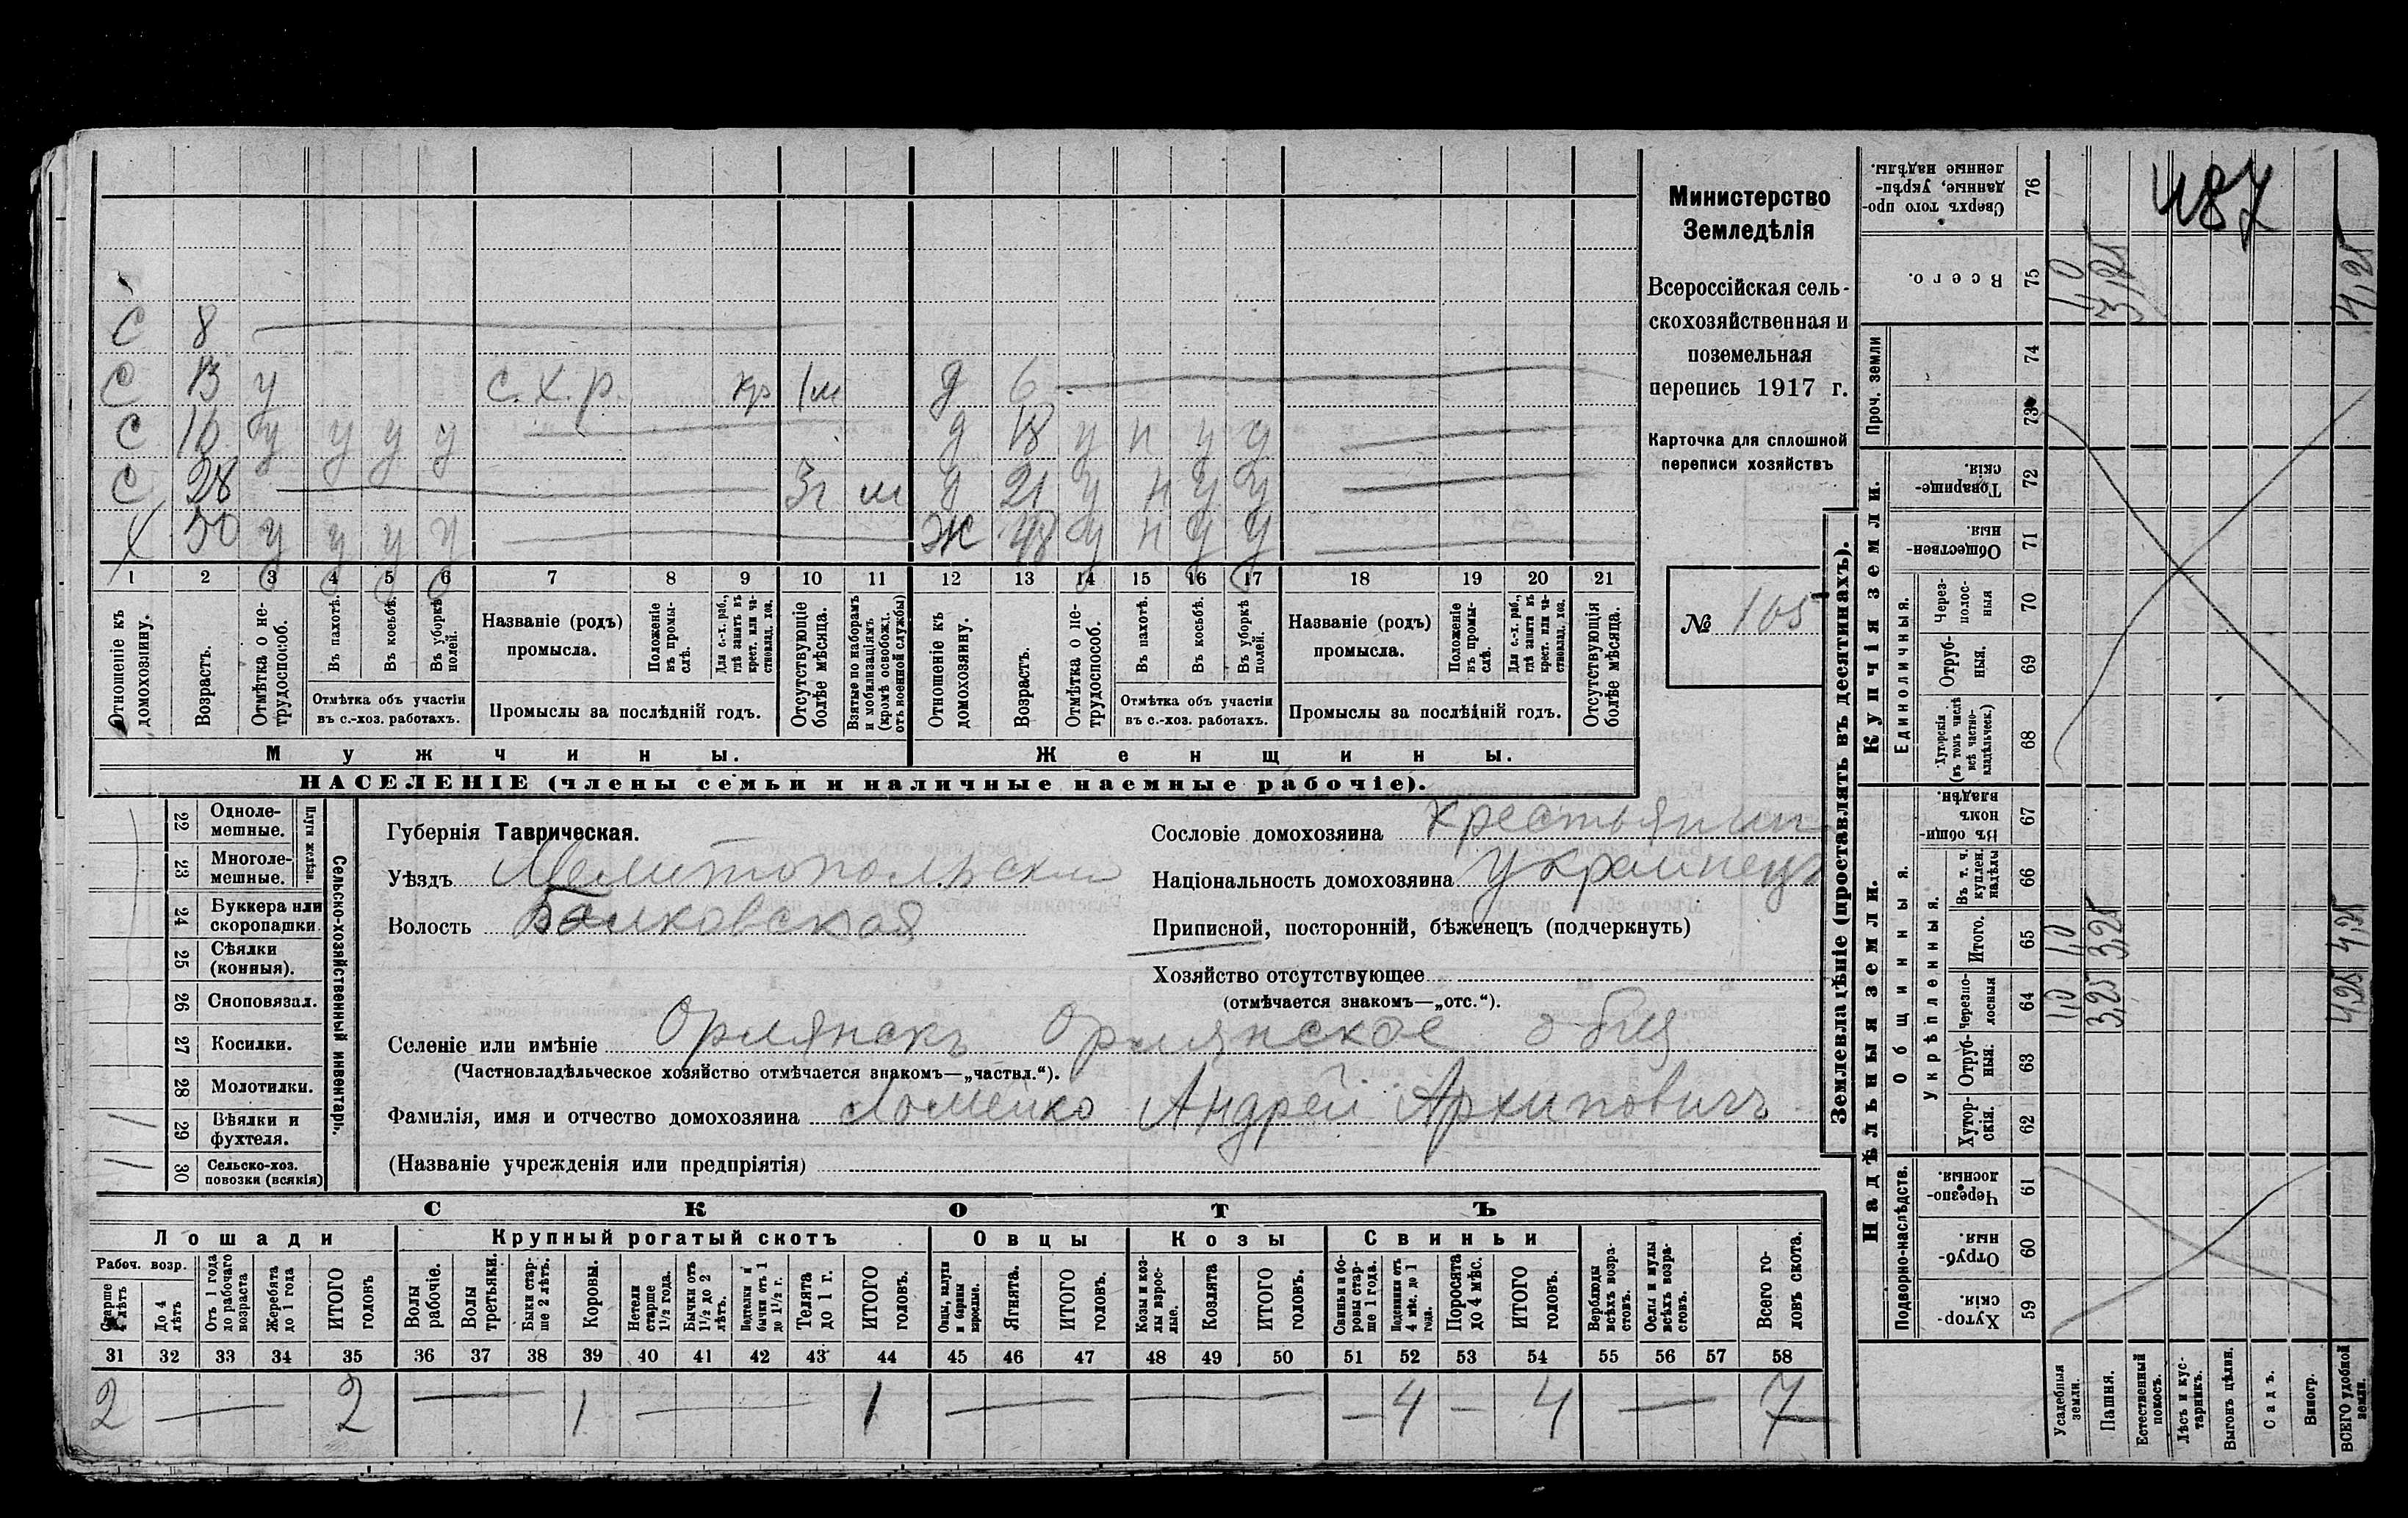 С 8
С 13 у с. х. р кр 1м д 6
С 16 у у у у д 18 у н у у
С 28 3г м д 21 у н у у
Х 50 у у у у Ж 48 у н у у
1 2 3 4 5 6 7 8 9 10 11 12 13 14 15 16 17 18 19 20 21
Отношеніе къ домохозяину.
Возрастъ.
Отмѣтка о нетрудоспособ.
Въ пахотѣ.
Въ косьбѣ.
Въ уборкѣ полей.
Отмѣтка объ участіи
въ с.-хоз. работахъ.
Названіе (родъ)
промысла.
Положеніе въ промыслѣ.
Для с.-х. раб., гдѣ занятъ въ крест. или частновлад. хоз.
Промыслы за послѣдній годъ.
Отсутствующіе болѣе мѣсяца.
Взятые по наборамъ и мобилизаціямъ (кромѣ освобожд. отъ военной службы)
Отношеніе къ домохозяину.
Возрастъ.
Отмѣтка о нетрудоспособ.
Въ пахотѣ.
Въ косьбѣ.
Въ уборкѣ полей.
Отмѣтка объ участіи
въ с.-хоз. работахъ.
Названіе (родъ)
промысла.
Положеніе въ промыслѣ.
Для с.-х. раб., гдѣ занятъ въ крест. или частновлад. хоз.
Промыслы за послѣдній годъ.
Отсутствующія болѣе мѣсяца.
Мужчины.
Женщины.
НАСЕЛЕНІЕ (члены семьи и наличные наемные рабочіе).
Министерство
Земледѣлія
Всероссійская сель-
скохозяйственная и
поземельная
перепись 1917 г.
Карточка для сплошной
переписи хозяйствъ
№ 105
22 Одноле-
мешные.
23 Многоле-
мешные.
24 Буккера или
скоропашки
25 Сѣялки
(конныя).
26 Сноповязал.
27 Косилки.
28 Молотилки.
29 Вѣялки и
фухтеля. 1
30 Сельско-хоз.
повозки (всякія) 1
Сельско-хозяйственный инвентарь.
Губернія Таврическая.
Уѣздъ Мелитопольский
Волость Балковская
Селеніе или имѣніе Орлянскъ Орлянское общ
(Частновладѣльческое хозяйство отмѣчается знакомъ—„частвл.“).
Фамилія, имя и отчество домохозяина Ломейко Андрей Архиповичъ
(Названіе учрежденія или предпріятія)
Сословіе домохозяина крестьянин
Національность домохозяина украинецъ
Приписной, посторонній, бѣженецъ (подчеркнуть)
Хозяйство отсутствующее
(отмѣчается знакомъ—„отс.“).
СКОТЪ
Лошади
Крупный рогатый скотъ
Овцы
Козы
Свиньи
Рабоч. возр.
Старше 4 лѣтъ
До 4 лѣтъ
Отъ 1 года до рабочаго возраста
Жеребята до 1 года
ИТОГО головъ
Волы рабочіе.
Волы третьяки.
Быки старше 2 лѣтъ.
Коровы.
Нетели старше 1½ года.
Бычки отъ 1½ до 2 лѣтъ.
Подтелки и бычки отъ 1 до 1½ г.
Телята до 1 г.
ИТОГО головъ.
Овцы, валухи и бараны взрослые.
Ягнята.
ИТОГО головъ.
Козы и козлы взрослые.
Козлята
ИТОГО головъ.
Свиньи и боровы старше 1 года.
Подсвинки отъ 4 мѣс. до 1 года.
Поросята до 4 мѣс.
ИТОГО головъ.
Верблюды всѣхъ возрастовъ.
Ослы и мулы всѣхъ возрастовъ.
Всего головъ скота.
31 32 33 34 35 36 37 38 39 40 41 42 43 44 45 46 47 48 49 50 51 52 53 54 55 56 57 58
2 — 2 — 1 — 1 — — — 4 — 4 — 7
Землевладѣніе (проставлять въ десятинахъ).
Надѣльныя земли.
Купчія земли.
Проч. земли
Подворно-наслѣдств.
Общинныя.
Укрѣпленныя.
Единоличныя.
Сверхъ того проданные, укрѣпленные надѣлы. 76
Всего. 75
74
73
Товарищескія. 72
Общественныя 71
Черезполосныя 70
Отрубныя. 69
Хуторскія (въ томъ числѣ всѣ частновладѣльческ.) 68
Въ общинномъ владѣн. 67
Въ т. ч. куплен. надѣлы 66
Итого. 65
Черезполосныя 64
Отрубныя. 63
Хуторскія. 62
Черезполосныя. 61
Отрубныя. 60
Хуторскія. 59
487
1,0 3,25 4,25
1,0 3,25 4,25
1,0 3,25 4,25
Усадебныя земли.
Пашня.
Естественный покосъ.
Лѣсъ и кустарникъ.
Выгонъ цѣлин.
Садъ.
Виногр.
ВСЕГО удобной земли.